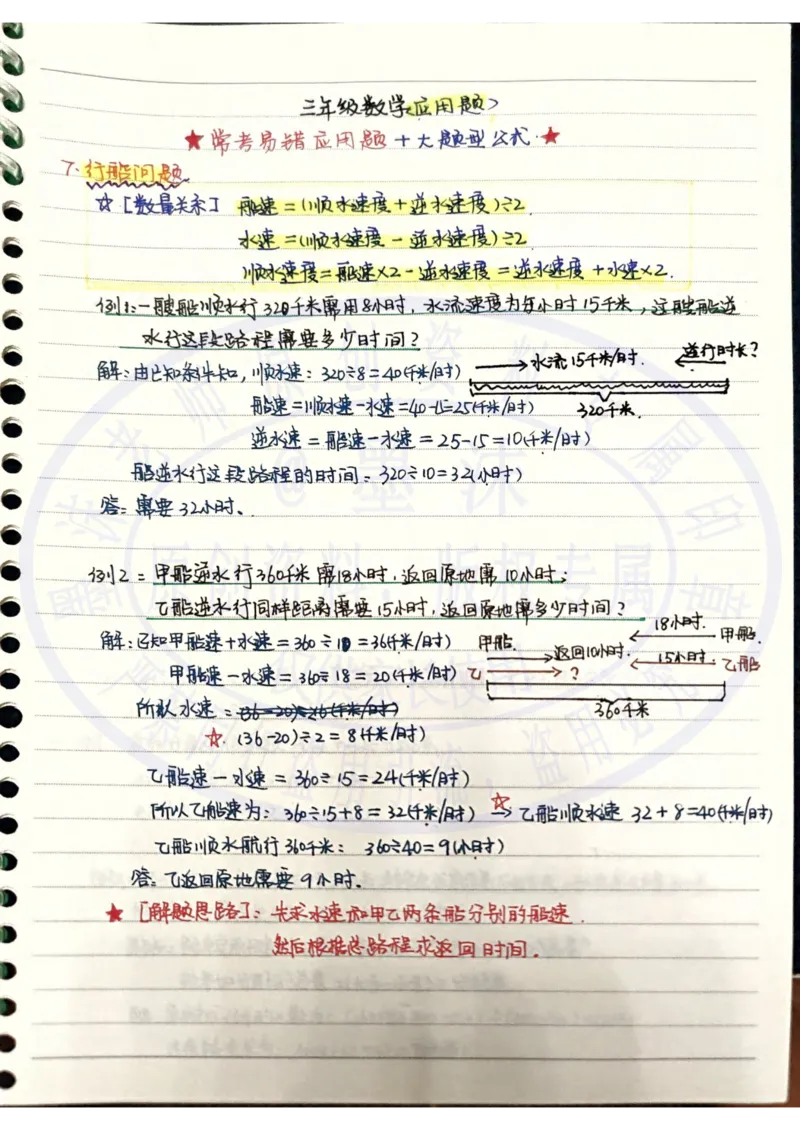 三年级数学应用题>
★常考易错应用题+大题型公式★
7.行船问题
☆[数量关系] 船速=(顺水速度+逆水速度)÷2.
水速=(顺水速度-逆水速度)÷2.
顺水速度=船速×2-逆水速度=逆水速度+水速×2.
例1:一艘船顺水行320千米需用8小时,水流速度为每小时15千米,这艘船逆
水行这段路程需要多少时间?
解:由已知条件知,顺水速:320÷8=40(千米/时)
水流15千米/时.
逆行时长?
船速=顺水速-水速=40-15=25(千米/时)
320千米.
逆水速=船速-水速=25-15=10(千米/时)
船逆水行这段路程的时间:320÷10=32(小时)
答:需要32小时.
例2:甲船逆水行360千米需18小时,返回原地需10小时;
乙船逆水行同样距离需要15小时,返回原地需多少时间?
18小时.
甲船.
解:已知甲船速+水速=360÷10=36(千米/时)
甲船.
返回10小时.
15小时.
乙船
甲船速-水速=360÷18=20(千米/时)
乙
?
360千米
所以水速=(36-20)=26(千米/时)
☆.(36-20)÷2=8(千米/时)
乙船速-水速=360÷15=24(千米/时)
所以乙船速为:360÷15+8=32(千米/时) ☆→ 乙船顺水速 32+8=40(千米/时)
乙船顺水航行360千米: 360÷40=9(小时)
答:乙返回原地需要9小时.
★[解题思路]:先求水速和甲乙两条船分别的船速.
然后根据总路程求返回时间.
墨沫
原创资料,版权专属